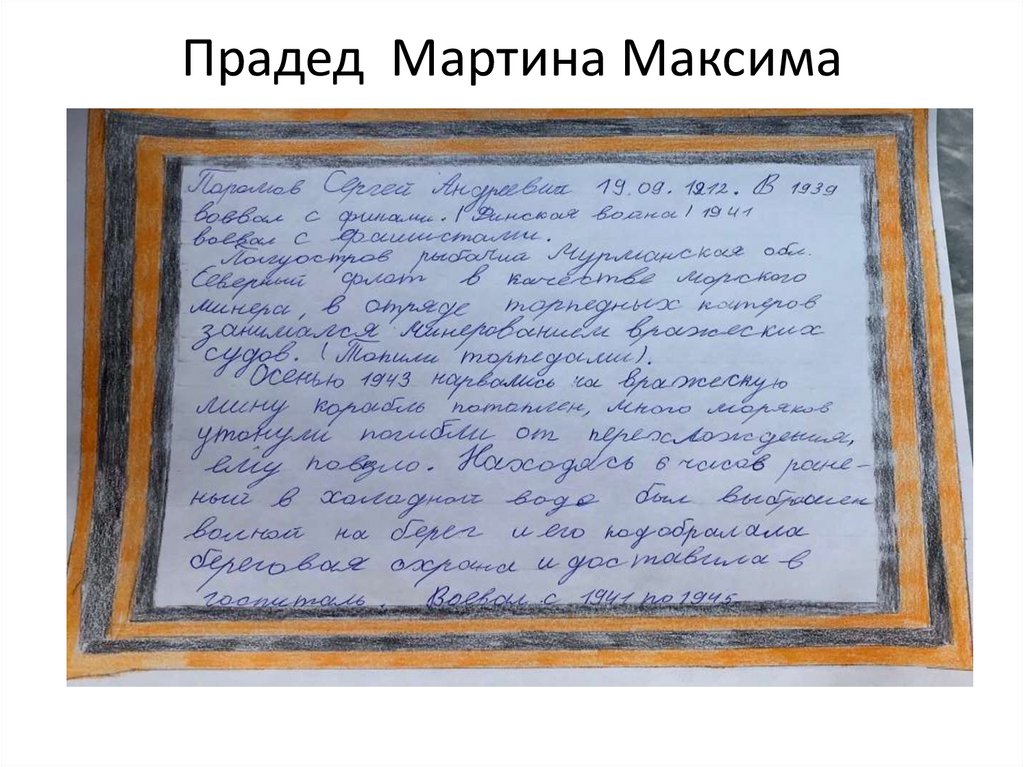 Прадед Мартина Максима
Парамов Сергей Андреевич 19.09.1912. В 1939
воевал с финами. (Финская война) 1941
воевал с фашистами.
Полуостров рыбачий Мурманская обл.
Северний флот в качестве морского
минера, в отряде торпедных катеров
занимался минерованием вражеских
судов. (Топили торпедами).
Осенью 1943 нарвались на вражескую
мину корабль потоплен, много моряков
утонули погибли от перехлождения,
ему повзло. Находясь 6 часов ране-
ный в холодной воде был выброшен
волной на берег и его подобралала
береговая охрана и доставила в
госпиталь. Воевал с 1941 по 1945